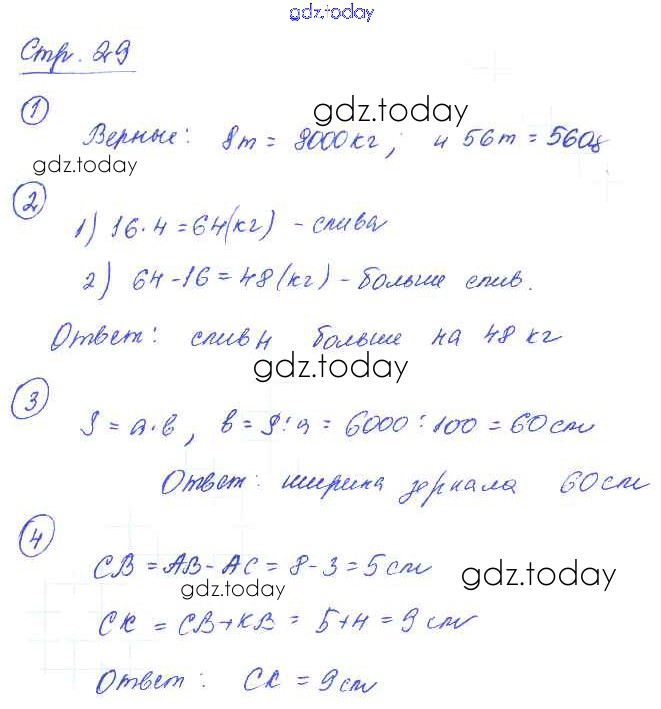 gdz.today
Стр. 29
1
gdz.today
Верные: 8т = 8000кг; и 56т = 560ц
gdz.today
2
1) 16·4=64(кг) - слива
2) 64-16=48(кг) - больше слив.
Ответ: слив больше на 48 кг
gdz.today
3
S = а·в, в = S:а = 6000:100 = 60см
Ответ: ширина зеркала 60см
4
СВ = АВ-АС = 8-3 = 5см
gdz.today
gdz.today
СК = СВ+КВ = 5+4 = 9см
Ответ: СК = 9см